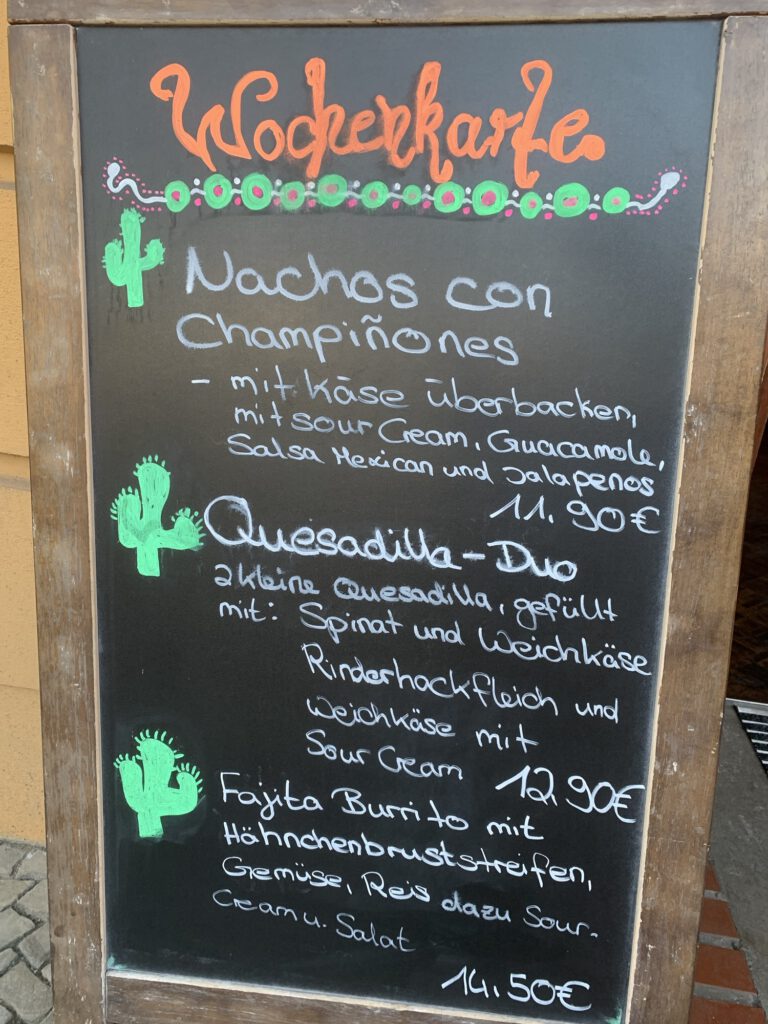 Wochenkarte
Nachos con
Champiñones
- mit Käse überbacken,
mit sour Cream, Guacamole,
Salsa Mexican und Jalapenos
11.90€
Quesadilla-Duo
2 kleine Quesadilla, gefüllt
mit: Spinat und Weichkäse
Rinderhackfleich und
Weichkäse mit
Sour Cream 12.90€
Fajita Burrito mit
Hähnchenbruststreifen,
Gemüse, Reis dazu Sour-
Cream u. Salat
14.50€